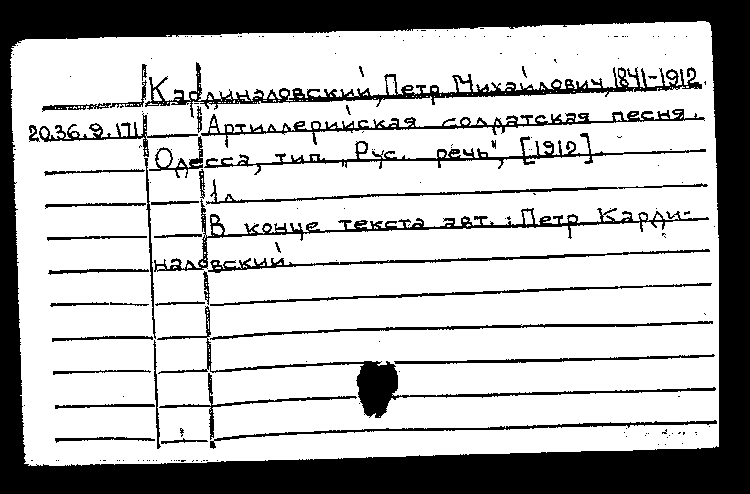 Кардиналовский, Петр Михайлович, 1841-1912.
20.36.9.171 Артиллерийская солдатская песня.
Одесса, тип. "Рус. речь", [1912].
1 л.
В конце текста авт.: Петр Карди-
наловский.